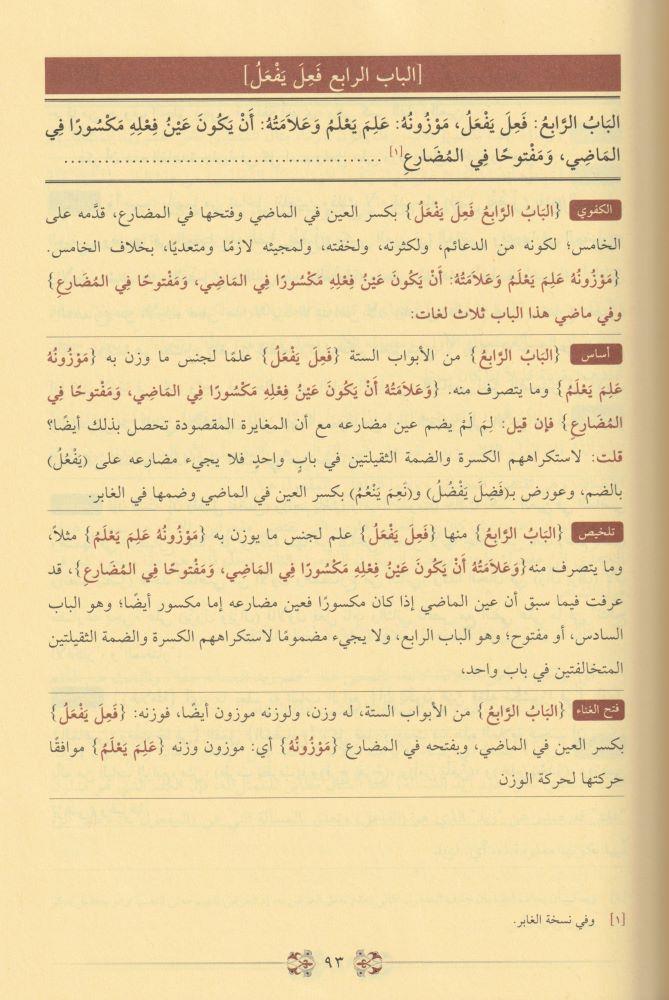 [الباب الرابع فَعِلَ يَفْعَلُ]
البَابُ الرَّابِعُ: فَعِلَ يَفْعَلُ، مَوْزُونُهُ: عَلِمَ يَعْلَمُ وَعَلاَمَتُهُ: أَنْ يَكُونَ عَيْنُ فِعْلِهِ مَكْسُورًا فِي
المَاضِي، وَمَفْتوحًا فِي المُضَارِعِ[١] ................................................
الكفوي {البَابُ الرَّابِعُ فَعِلَ يَفْعَلُ} بكسر العين في الماضي وفتحها في المضارع، قدَّمه على
الخامس؛ لكونه من الدعائم، ولكثرته، ولخفته، ولمجيئه لازمًا ومتعديًا، بخلاف الخامس.
{مَوْزُونُهُ عَلِمَ يَعْلَمُ وَعَلاَمَتُهُ: أَنْ يَكُونَ عَيْنُ فِعْلِهِ مَكْسُورًا فِي المَاضِي، وَمَفْتوحًا فِي المُضَارِعِ}
وفي ماضي هذا الباب ثلاث لغات:
أساس {البَابُ الرَّابِعُ} من الأبواب الستة {فَعِلَ يَفْعَلُ} علمًا لجنس ما وزن به {مَوْزُونُهُ
عَلِمَ يَعْلَمُ} وما يتصرف منه. {وَعَلاَمَتُهُ أَنْ يَكُونَ عَيْنُ فِعْلِهِ مَكْسُورًا فِي المَاضِي، وَمَفْتوحًا فِي
المُضَارِعِ} فإن قيل: لِمَ لَمْ يضم عين مضارعه مع أن المغايرة المقصودة تحصل بذلك أيضًا؟
قلت: لاستكراههم الكسرة والضمة الثقيلتين في بابٍ واحدٍ فلا يجيء مضارعه على (يَفْعُلُ)
بالضم، وعورض بـ(فَضِلَ يَفْضُلُ) و(نَعِمَ يَنْعُمُ) بكسر العين في الماضي وضمها في الغابر.
تلخيص {البَابُ الرَّابِعُ} منها {فَعِلَ يَفْعَلُ} علم لجنس ما يوزن به {مَوْزُونُهُ عَلِمَ يَعْلَمُ} مثلاً،
وما يتصرف منه{وَعَلاَمَتُهُ أَنْ يَكُونَ عَيْنُ فِعْلِهِ مَكْسُورًا فِي المَاضِي، وَمَفْتوحًا فِي المُضَارِعِ}، قد
عرفت فيما سبق أن عين الماضي إذا كان مكسورًا فعين مضارعه إما مكسور أيضًا؛ وهو الباب
السادس، أو مفتوح؛ وهو الباب الرابع، ولا يجيء مضمومًا لاستكراههم الكسرة والضمة الثقيلتين
المتخالفتين في باب واحد،
فتح الغناء {البَابُ الرَّابِعُ} من الأبواب الستة، له وزن، ولوزنه موزون أيضًا، فوزنه: {فَعِلَ يَفْعَلُ}
بكسر العين في الماضي، وبفتحه في المضارع {مَوْزُونُهُ} أي: موزون وزنه {عَلِمَ يَعْلَمُ} موافقًا
حركتها لحركة الوزن
[١] وفي نسخة الغابر.
٩٣